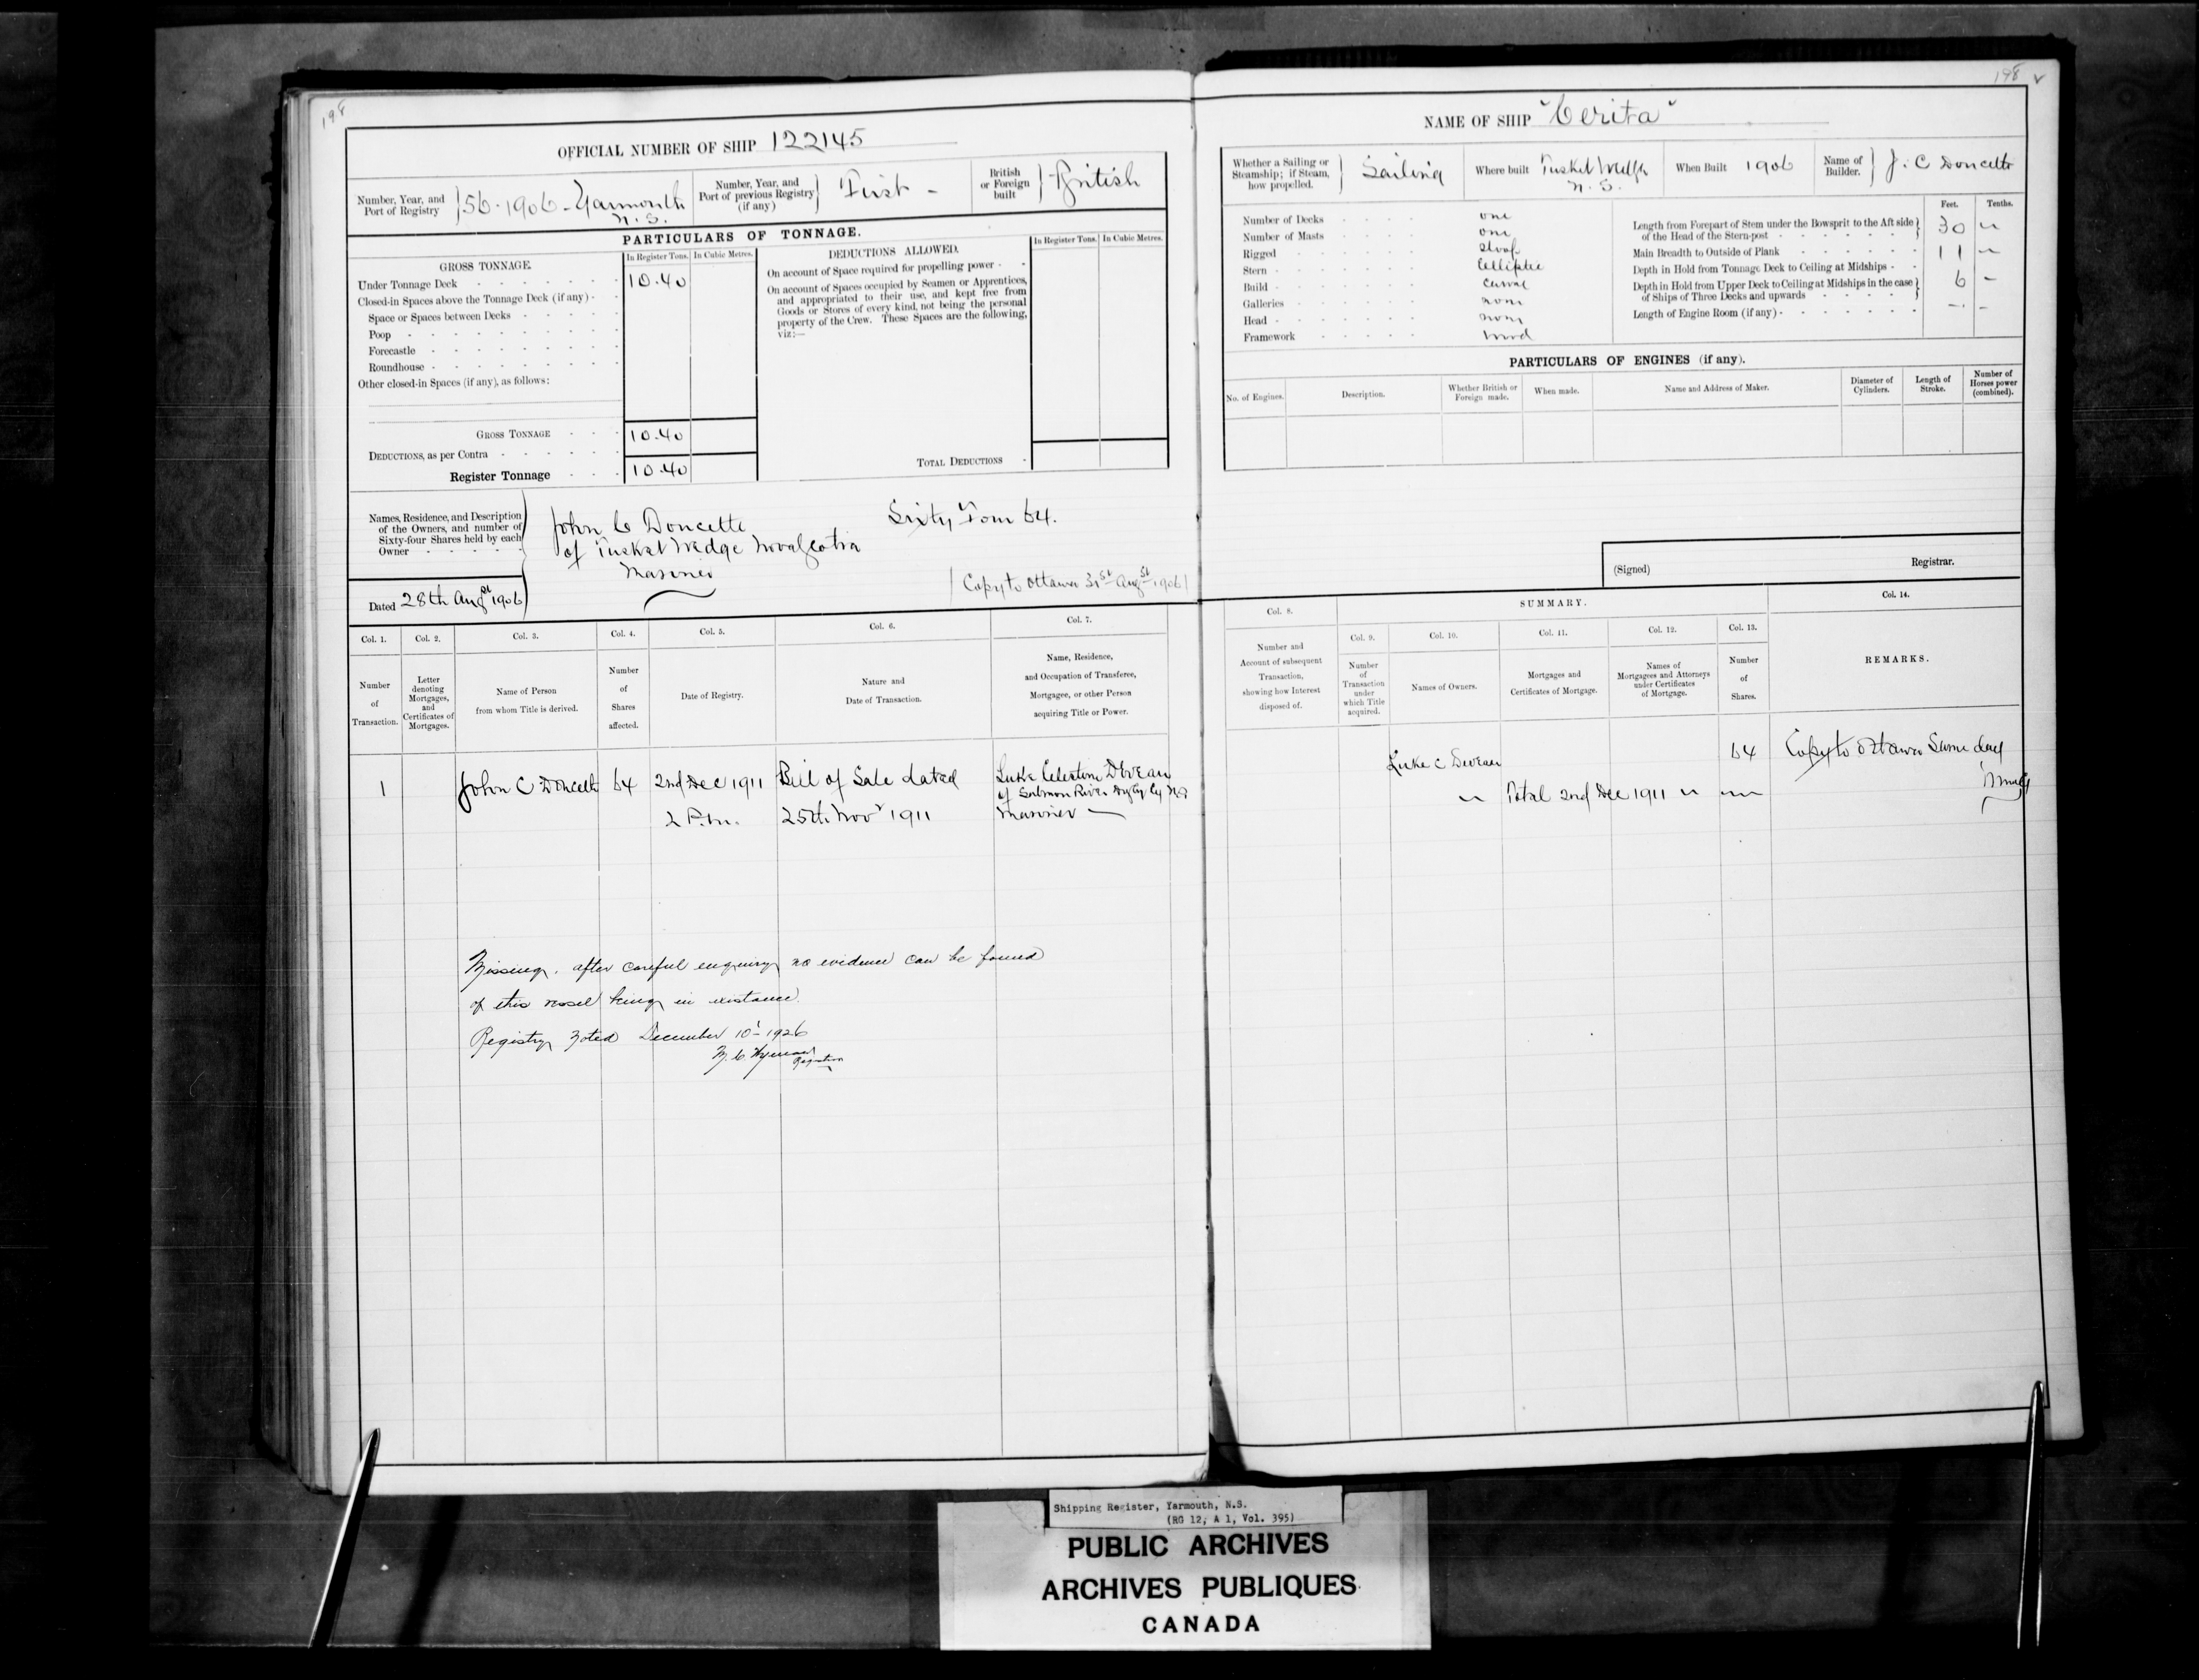 198
OFFICIAL NUMBER OF SHIP 122145
Number, Year, and Port of Registry } 56.1906-Yarmouth N.S.
Number, Year, and Port of previous Registry (if any) } First -
British or Foreign built } British
PARTICULARS OF TONNAGE.
GROSS TONNAGE.
In Register Tons. In Cubic Metres.
Under Tonnage Deck 10.40
Closed-in Spaces above the Tonnage Deck (if any)
Space or Spaces between Decks
Poop
Forecastle
Roundhouse
Other closed-in Spaces (if any), as follows:
GROSS TONNAGE 10.40
DEDUCTIONS, as per Contra
Register Tonnage 10.40
DEDUCTIONS ALLOWED.
In Register Tons. In Cubic Metres.
On account of Space required for propelling power
On account of Spaces occupied by Seamen or Apprentices,
and appropriated to their use, and kept free from
Goods or Stores of every kind, not being the personal
property of the Crew. These Spaces are the following,
viz:—
TOTAL DEDUCTIONS
Names, Residence, and Description
of the Owners, and number of
Sixty-four Shares held by each
Owner
John C Doucette Sixty Four 64.
of Tusket Wedge Nova Scotia
Mariner
Dated 28th Augst 1906
Copy to Ottawa 31st Augst 1906
Col. 1. Col. 2. Col. 3. Col. 4. Col. 5. Col. 6. Col. 7.
Number of Transaction.
Letter denoting Mortgages, and Certificates of Mortgages.
Name of Person from whom Title is derived.
Number of Shares affected.
Date of Registry.
Nature and Date of Transaction.
Name, Residence, and Occupation of Transferee, Mortgagee, or other Person acquiring Title or Power.
1 John C Doucette 64 2nd Dec 1911 Bill of Sale dated Luke Celestine Deveau
of Salmon River Digby Cy N.S
2 P.M. 25th Novr 1911 Mariner
Missing. after careful enquiry no evidence can be found
of this vessel being in existance.
Registry December 10 - 1926
Registrar
198
NAME OF SHIP "Cerita"
Whether a Sailing or Steamship; if Steam, how propelled. } Sailing
Where built Tusket Wedge N.S.
When Built 1906
Name of Builder. } J. C Doucette
Number of Decks one
Number of Masts one
Rigged Sloop
Stern Elliptic
Build Carvel
Galleries none
Head none
Framework wood
Feet. Tenths.
Length from Forepart of Stem under the Bowsprit to the Aft side of the Head of the Stern-post 30
Main Breadth to Outside of Plank 11
Depth in Hold from Tonnage Deck to Ceiling at Midships 6 -
Depth in Hold from Upper Deck to Ceiling at Midships in the case of Ships of Three Decks and upwards
Length of Engine Room (if any)
PARTICULARS OF ENGINES (if any).
No. of Engines. Description. Whether British or Foreign made. When made. Name and Address of Maker. Diameter of Cylinders. Length of Stroke. Number of Horses power (combined).
(Signed) Registrar.
Col. 8. SUMMARY. Col. 14.
Col. 9. Col. 10. Col. 11. Col. 12. Col. 13.
Number and Account of subsequent Transaction, showing how Interest disposed of.
Number of Transaction under which Title acquired.
Names of Owners.
Mortgages and Certificates of Mortgage.
Names of Mortgagees and Attorneys under Certificates of Mortgage.
Number of Shares.
REMARKS.
Luke C Deveau 64 Copy to Ottawa Same day
Total 2nd Dec 1911
Shipping Register, Yarmouth, N.S.
(RG 12, A 1, Vol. 395)
PUBLIC ARCHIVES
ARCHIVES PUBLIQUES
CANADA